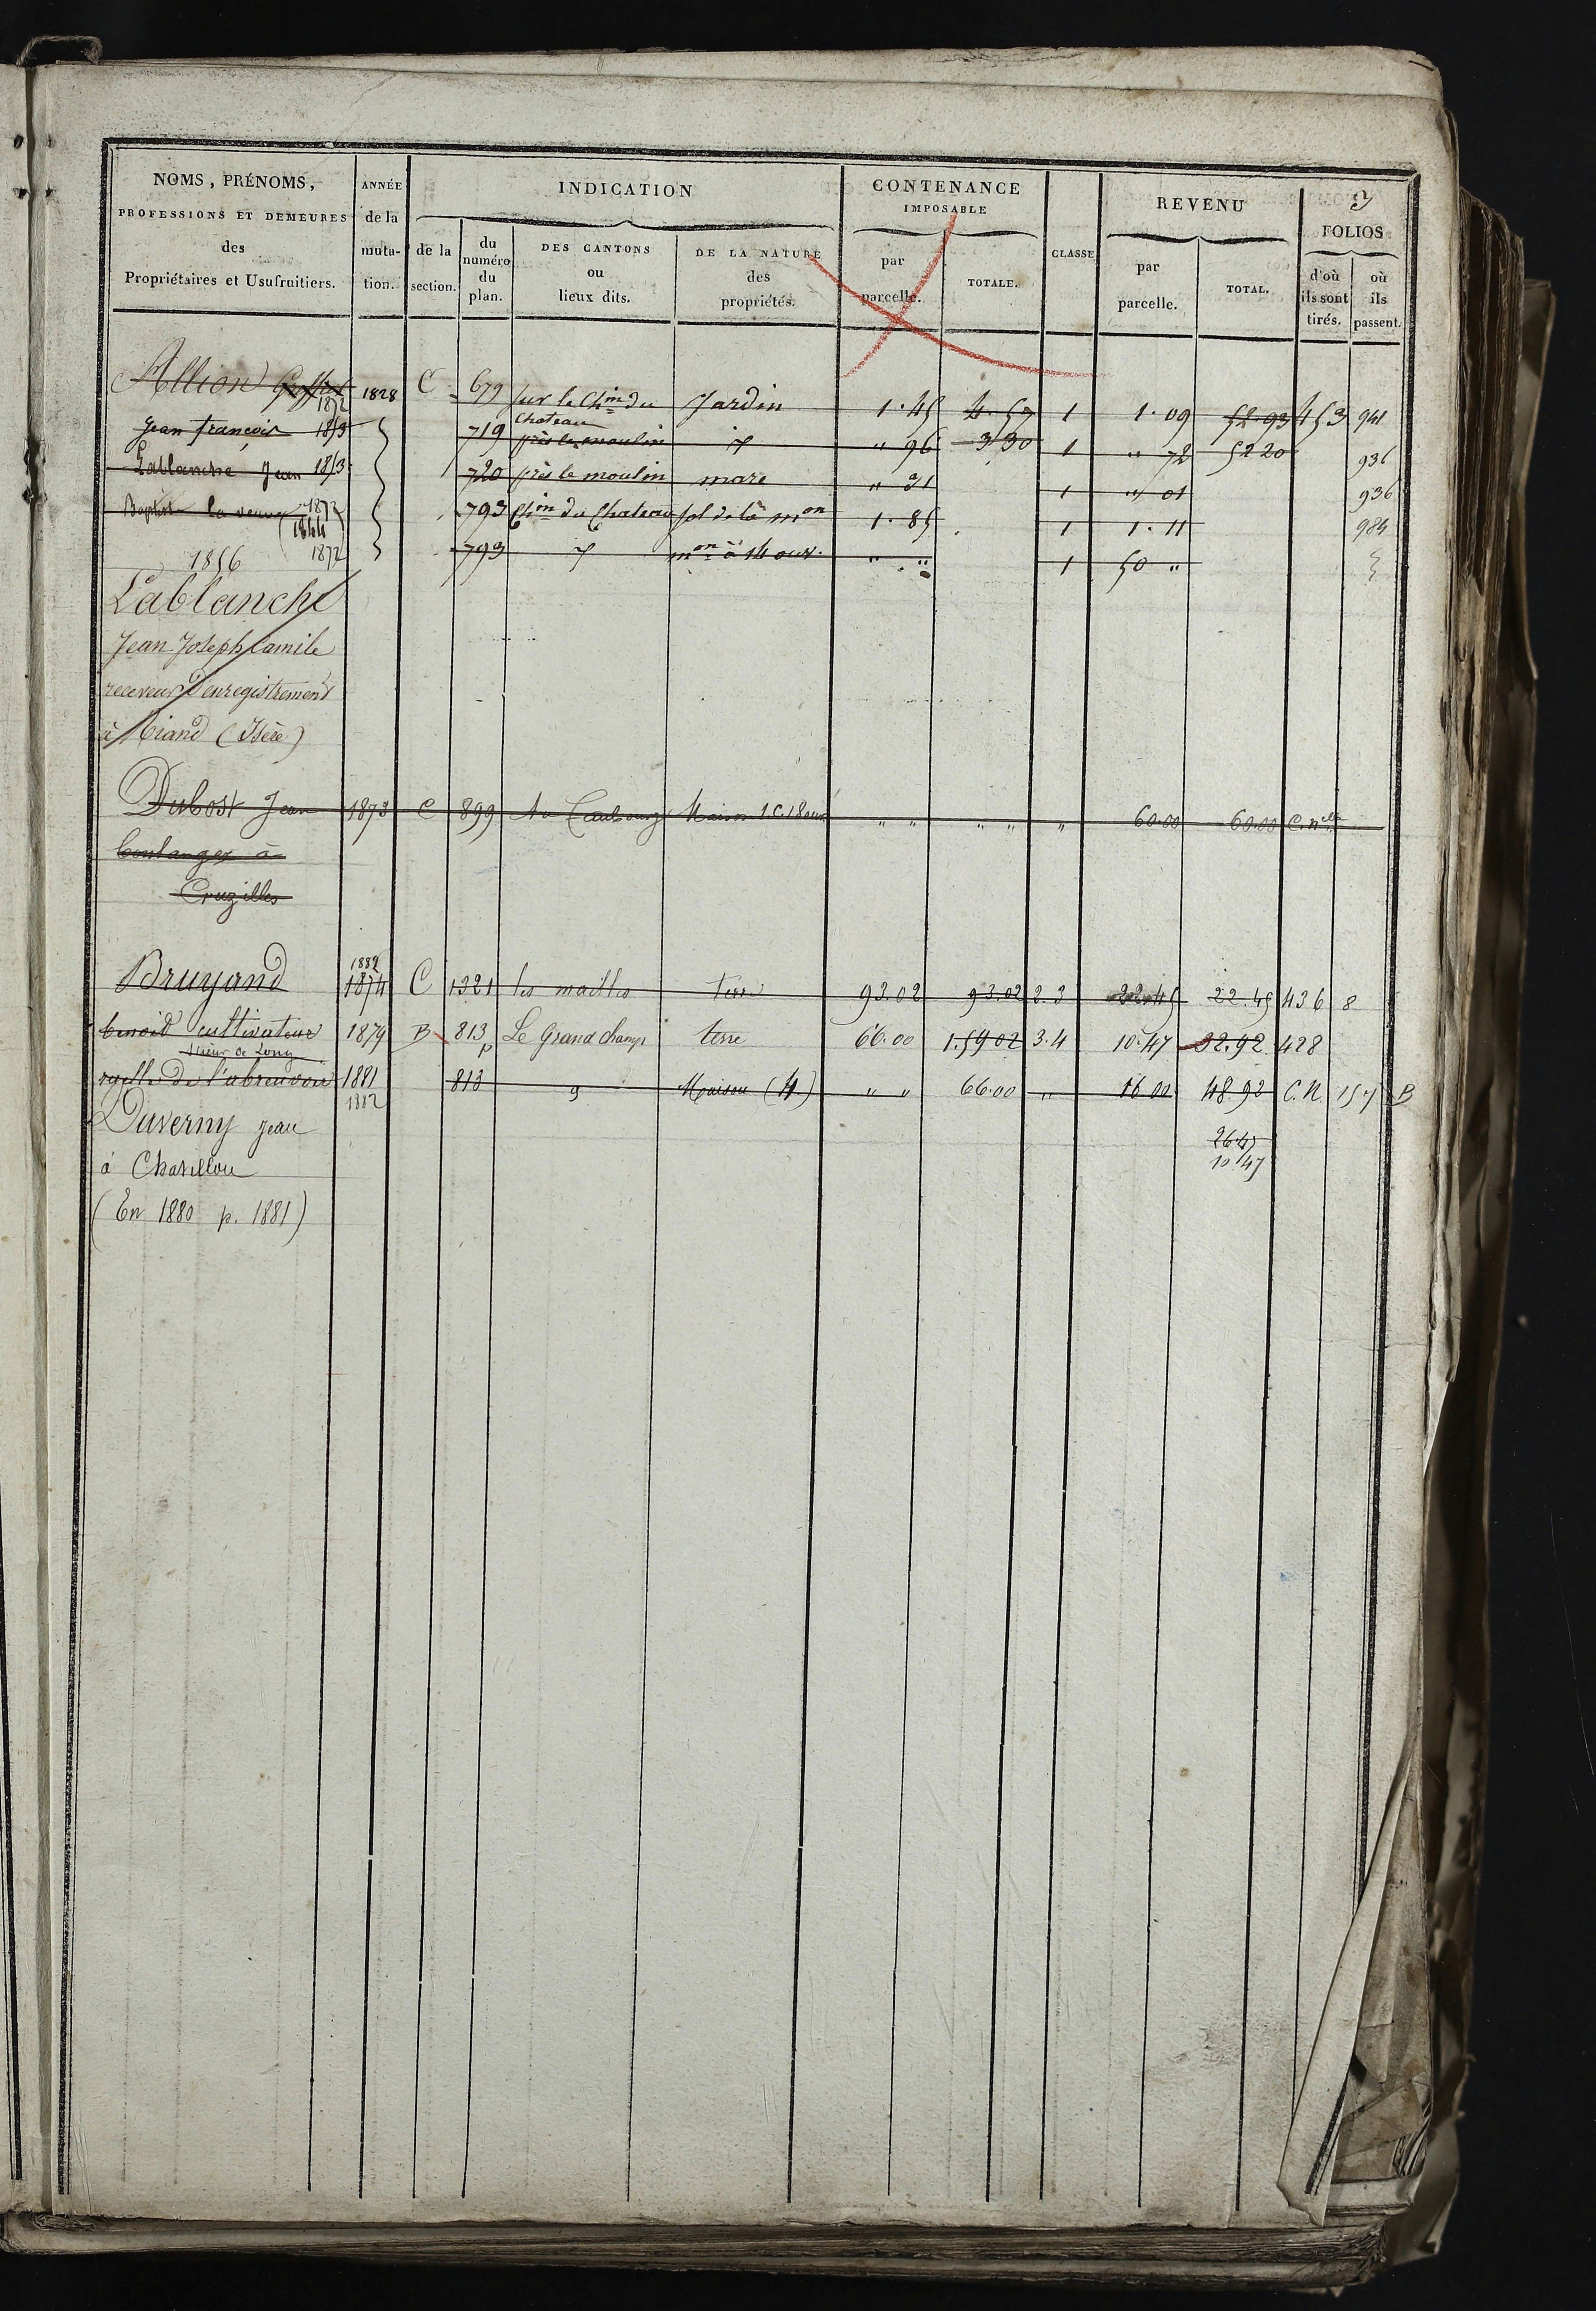 3
NOMS, PRÉNOMS, PROFESSIONS ET DEMEURES des Propriétaires et Usufruitiers.
ANNÉE de la muta-tion.
INDICATION
de la section.
du numéro du plan.
DES CANTONS ou lieux dits.
DE LA NATURE des propriétés.
CONTENANCE IMPOSABLE
par parcelle.
TOTALE.
CLASSE
REVENU
par parcelle.
TOTAL.
FOLIOS
d'où ils sont tirés.
où ils passent.
Allion 1828 C 679 Sur le Chin du Chateau Jardin 1.45 4.57 1 1.09 52.93 453 941
1872
Jean françois 1873 719 près le moulin id " 96 3.30 1 " 72 52 20 936
Lablanche Jean 1873 720 près le moulin mare " 31 1 " 01 936
Baptiste la veuve 1872 793 Chin du Chateau sol de la mon 1.85 1 1.11 984
1844
1856 1872 793 id mon à 14 ouv. " " 1 50 "
Lablanche
Jean Joseph Camile
receveur d'enregistrement
à (Isère)
Dubost Jean 1873 C 899 Au Faubourg Maison 1 C. 18 ouv. " " " " " 60.00 60.00 C. nelle
boulanger à
Cruzilles
1882
Bruyand 1874 C 1321 les mailles Terre 93.02 93.02 2.3 22.45 22.45 436 8
benoid cultivateur 1879 B 813p Le Grand champ terre 66.00 1.59 02 3.4 10.47 32.92 428
de l'abreuvoir 1881 813 Maison (4) " " 66.00 " 16 00 48 92 C.N. 157 B
1882
Duverny Jean
26.47
à Chatillon
10 47
(En 1880 p. 1881)